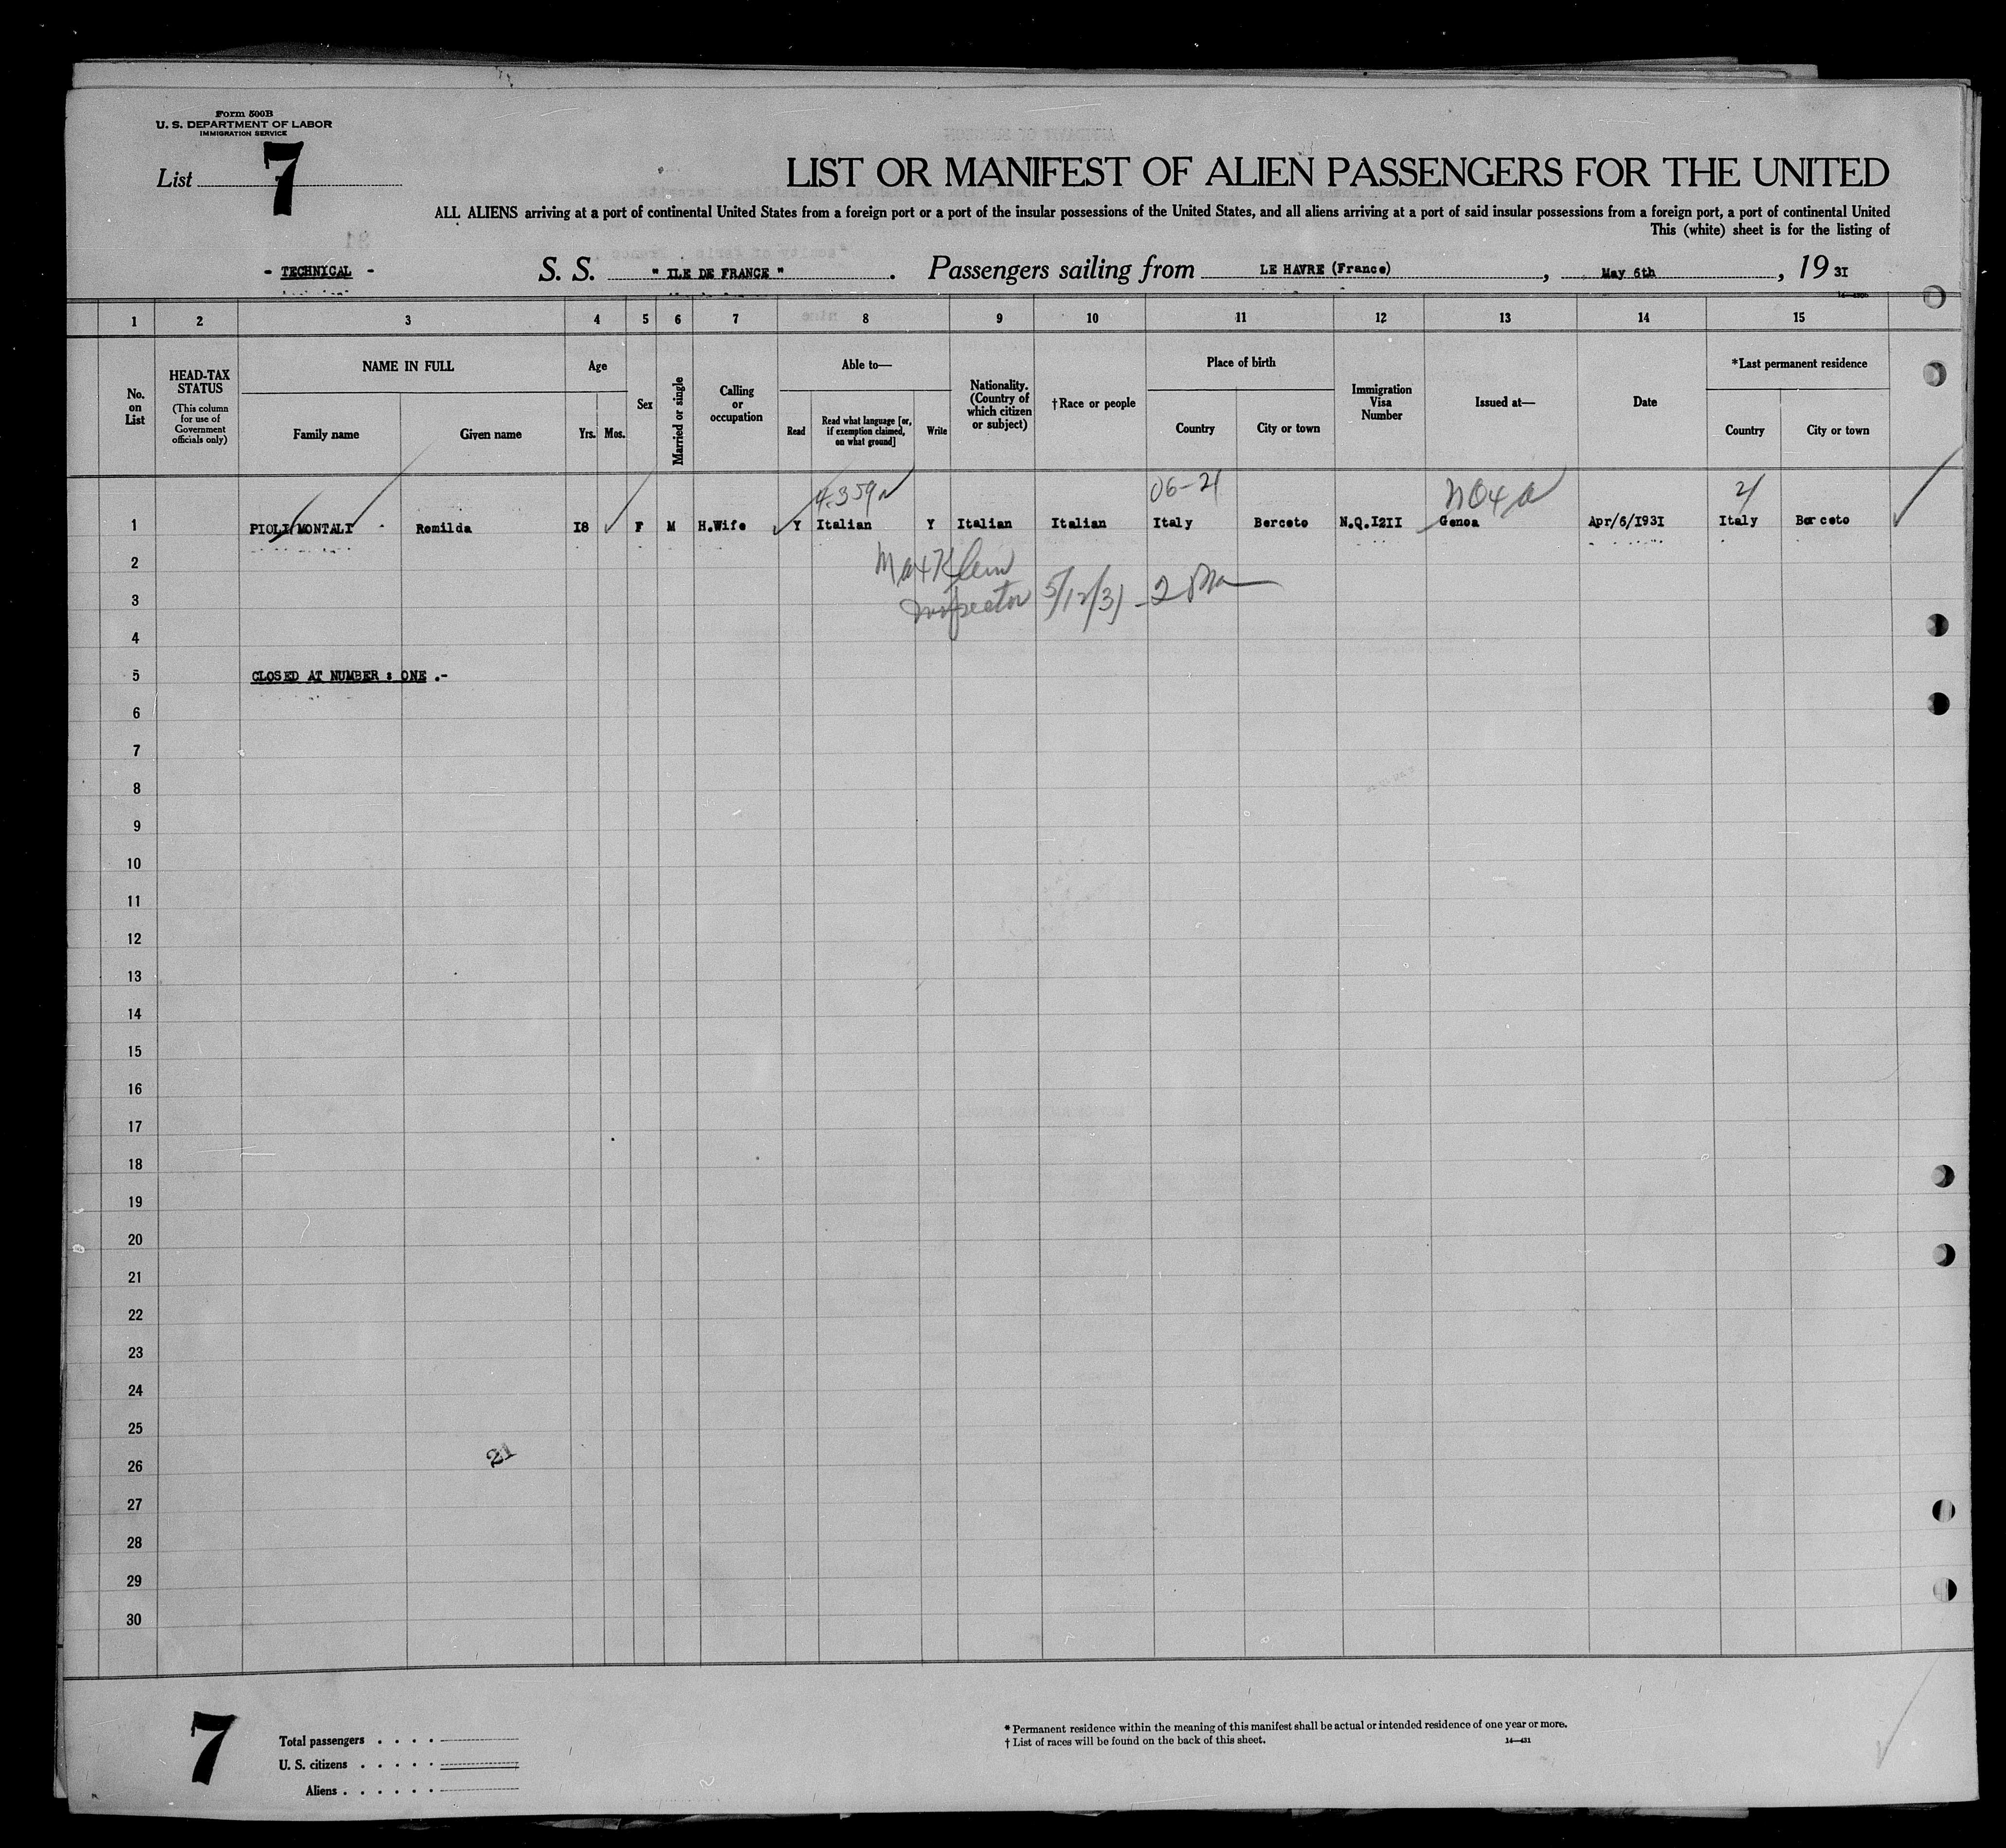 Form 500B
U. S. DEPARTMENT OF LABOR
IMMIGRATION SERVICE
List 7
LIST OR MANIFEST OF ALIEN PASSENGERS FOR THE UNITED
ALL ALIENS arriving at a port of continental United States from a foreign port or a port of the insular possessions of the United States, and all aliens arriving at a port of said insular possessions from a foreign port, a port of continental United
This (white) sheet is for the listing of
- TECHNICAL - S. S. " ILE DE FRANCE " . Passengers sailing from LE HAVRE (France) , May 6th , 19 3I
1 2 3 4 5 6 7 8 9 10 11 12 13 14 15
No. on List
HEAD-TAX STATUS
(This column for use of Government officials only)
NAME IN FULL
Family name
Given name
Age
Yrs.
Mos.
Sex
Married or single
Calling or occupation
Able to—
Read
Read what language [or, if exemption claimed, on what ground]
Write
Nationality. (Country of which citizen or subject)
†Race or people
Place of birth
Country
City or town
Immigration Visa Number
Issued at—
Date
*Last permanent residence
Country
City or town
06-21
1 PIOLI/MONTALI - Romilda I8 F M H.Wife Y Italian Y Italian Italian Italy Berceto N.Q.I2II Genoa Apr/6/I93I Italy Berceto
2
Max Klein
3
Inspector 5/12/31
4
5 CLOSED AT NUMBER : ONE .-
6
7
8
9
10
11
12
13
14
15
16
17
18
19
20
21
22
23
24
25
21
26
27
28
29
30
7
Total passengers . . . .
U. S. citizens . . . . .
Aliens . . . . . .
* Permanent residence within the meaning of this manifest shall be actual or intended residence of one year or more.
† List of races will be found on the back of this sheet.
14—431